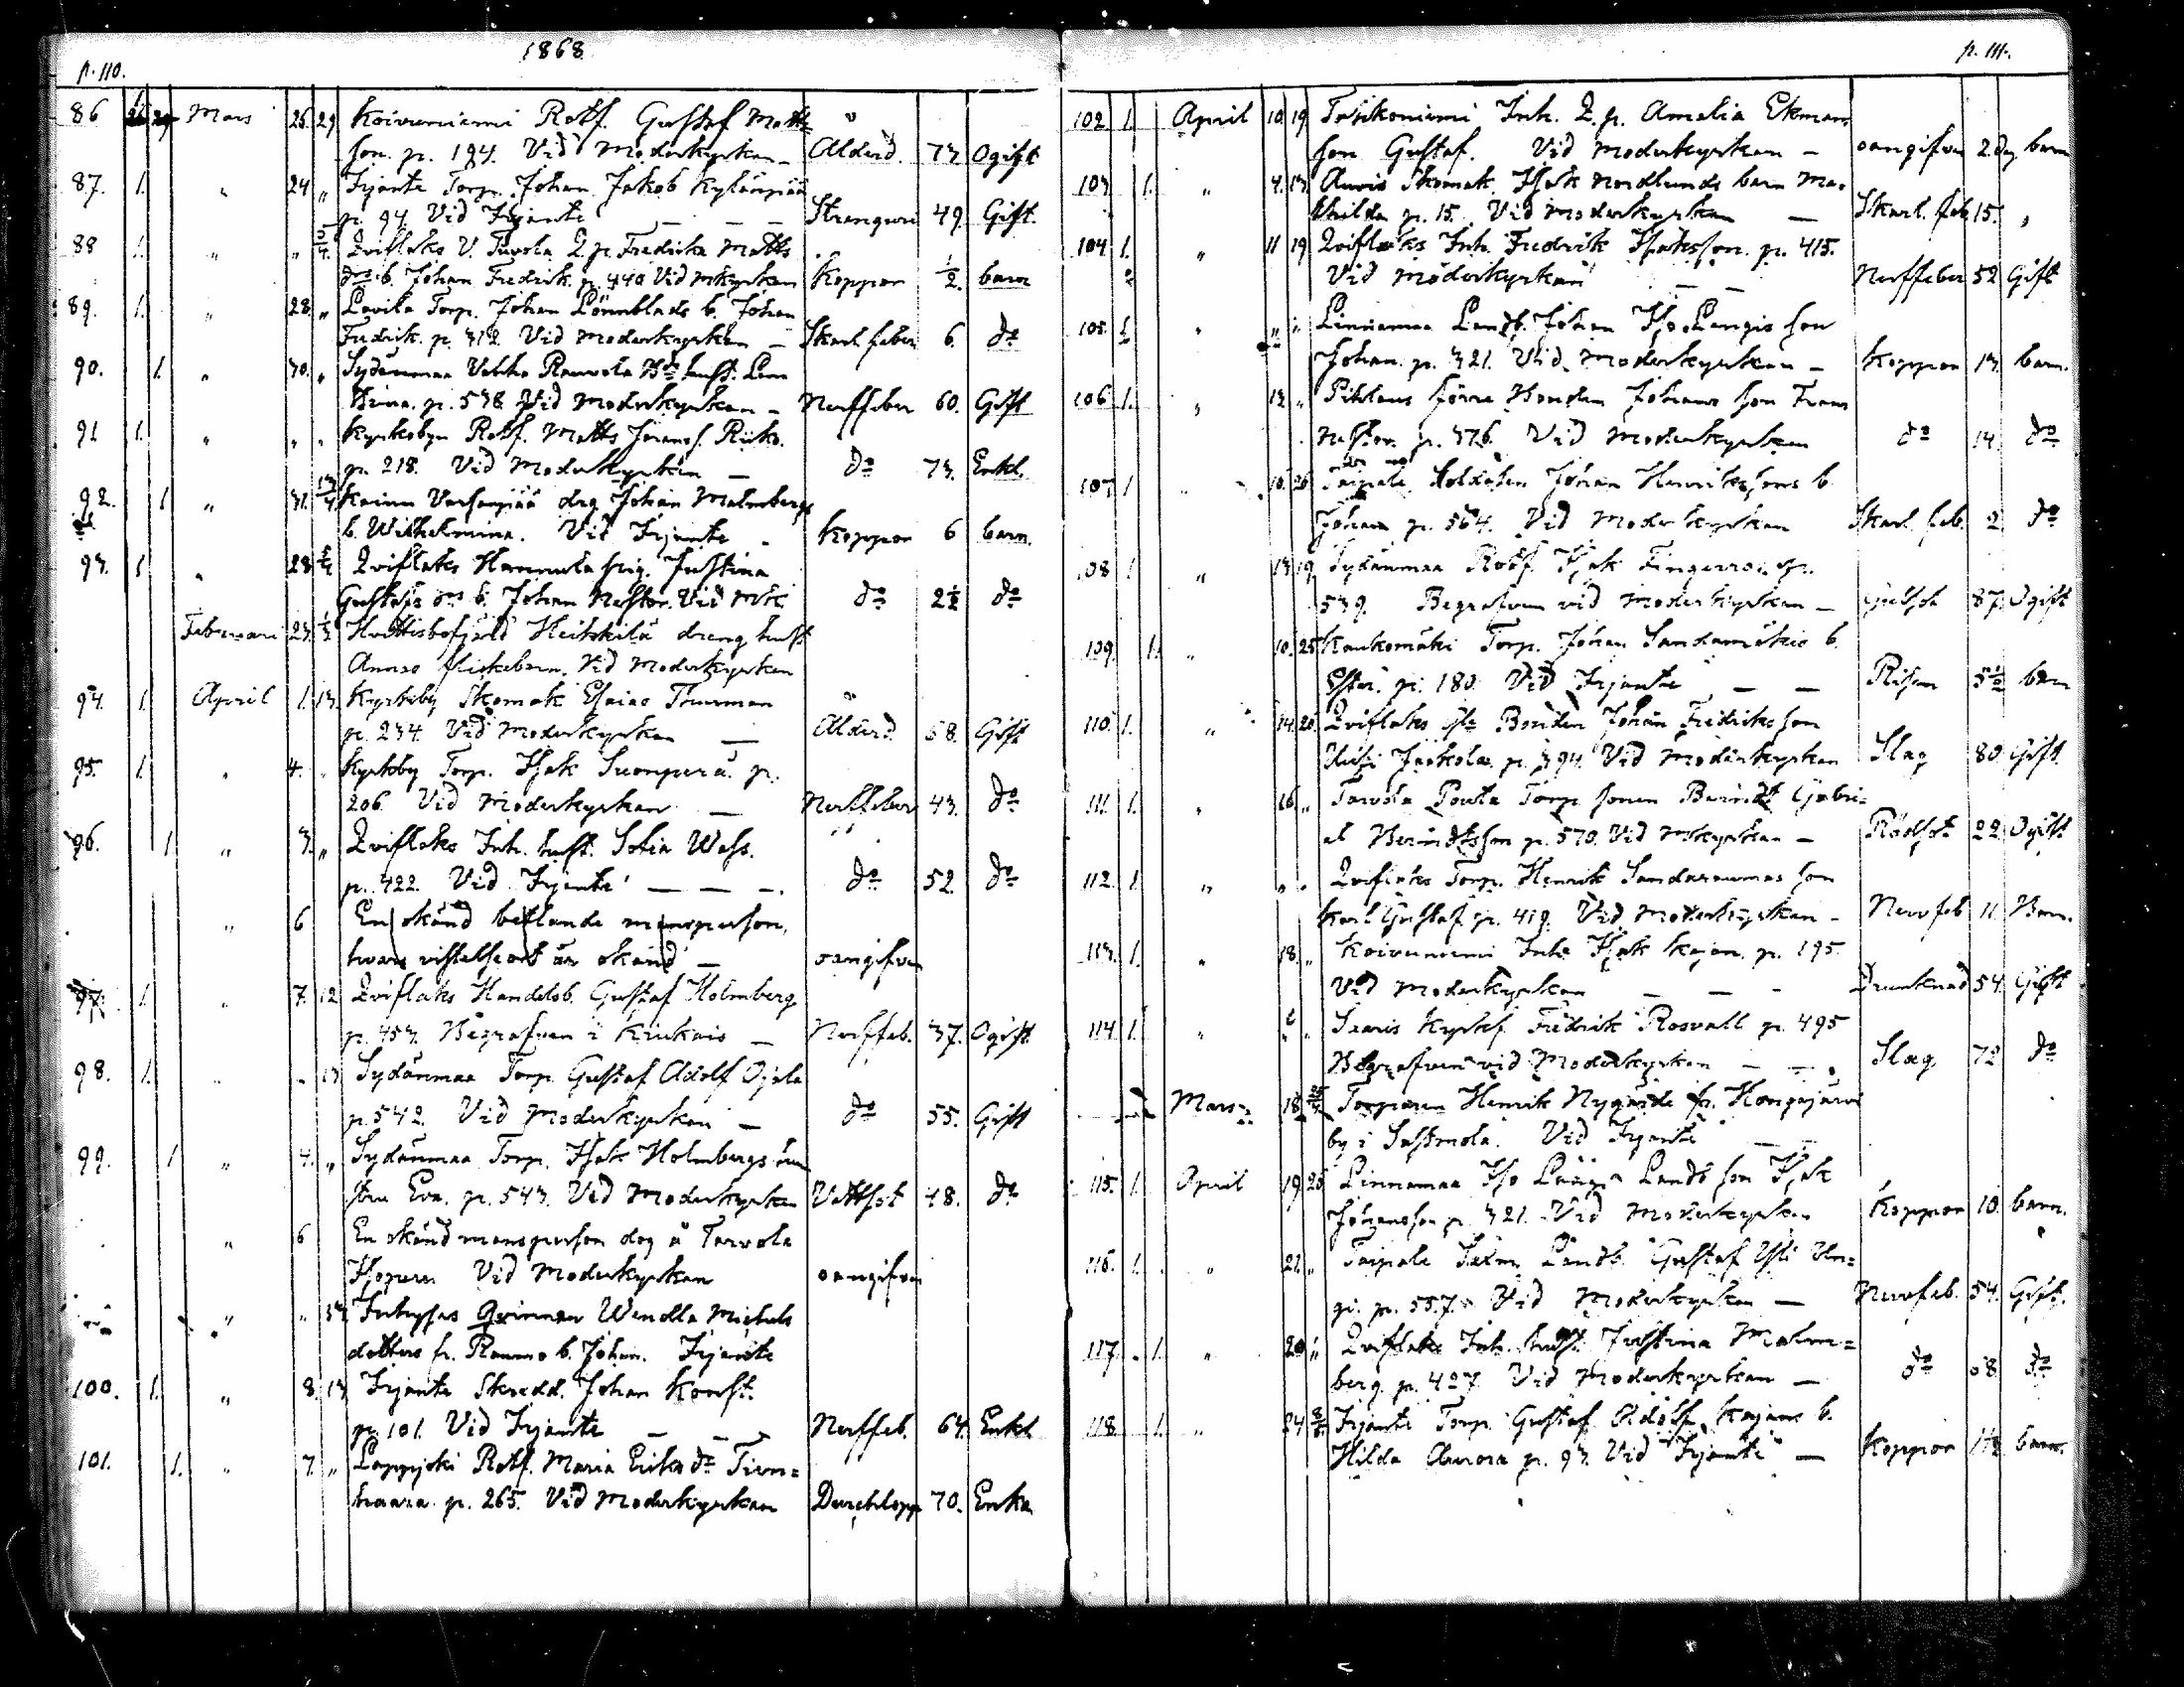 1868
p. 110.
86 Mars 25. 29 Koivuniemi Rotf. Gustaf Matts
son. p. 194. Vid Moderkyrkan – Ålderd. 73 Ogift
87. 1. " 24 " Irjante Torp. Johan Jakob Kylänpää
p. 94. Vid Irjante – – – Stranguri 49. Gift.
88 1. " " 5/4. Qviflaks V. Tuvola Q. p. Fredrika Matts
drs b. Johan Fredrik. p. 440 Vid Mkyrkan Koppor 1/2. barn
89. 1. " 28. " Lavila Torp. Johan Lönnblads b. Johan
Fredrik. p. 312. Vid Moderkyrkan – Skarl. feber 6. do
90. 1. " 30. " Sydänmaa hust. Lena
p. 538. Vid Moderkyrkan – Nerffeber 60. Gift
91 1. " " " Kyrkobyn Rotf. Matts
p. 218. Vid Moderkyrkan – do 73. Enkl.
92. 1 " 31. 13/4 drg Johan Malmbergs
b. Wilhelmina. Vid Irjante – Koppor 6 barn.
93. 1 " 28 Qviflaks Hannula pig. Justina
Gustafs drs b. Johan Nestor. Vid Mk. do 2 1/2 do
Februari 23. Heikkilä dreng hust
Annas flickebarn. Vid Moderkyrkan
94. 1. April 1. 13. Kyrkoby Skomak Esaias Thurman
p. 234. Vid Moderkyrkan – Ålderd. 68. Gift
95. 1. " 4. " Kyrkoby Torp. Isak Suonperä. p.
206. Vid Moderkyrkan – Nerffeber 43. do
96. 1 " 3. " Qviflaks Inh. hust. Sofia Wass.
p. 422. Vid Irjante – – – do 52. do
" 6 En okänd betlande mansperson,
hvars vistelseort är okänd – oangifven
97. 1. " 7. 12 Qviflaks Handelsb. Gustaf Holmberg
p. 453. Begrafven i Kiukais – Nerffeb. 37. Ogift
98. 1. " " 13 Sydänmaa Torp. Gustaf Adolf Ojala
p. 542. Vid Moderkyrkan – do 55. Gift
99. 1 " 4. " Sydänmaa Torp. Isak Holmbergs hu
stru Eva. p. 543. Vid Moderkyrkan Vattsot 48. do
" 6 En okänd mansperson dog å Tarvola
Vid Moderkyrkan oangifven
" " 13 Inhyses Qvinnan Wendla Michels
dotters fr. Raumo b. Johan. Irjante
100. 1. " 8. 13 Irjante Skredd. Johan Konst.
p. 101. Vid Irjante – – Nerffeb. 64. Enkl
101. 1. " 7. " Lappijoki Rotf. Maria Eriks dr
p. 265. Vid Moderkyrkan 70. Enka
p. 111.
102 1. April 10. 19 Inh. Q. p. Amalia Ekmans
son Gustaf. Vid Moderkyrkan – oangifven 2. dag barn
103 1. " 4. 13. Skomak. Isak Nordlunds barn Ma-
thilda p. 15. Vid Moderkyrkan – Skarl. feb. 15. "
104 1. " 11 19 Qviflaks Inh. Fredrik Isaksson. p. 415.
Vid Moderkyrkan – – Nerffeber 52 Gift
105. 1. " " " Linnamaa Landb. Johan Iso Längis son
Johan. p. 321. Vid Moderkyrkan – Koppor 13. barn.
106 1. " 12 " Pihlaus förra Bonden Johans son Frans
Nestor. p. 376. Vid Moderkyrkan do 14. do
107 1 " 10. 26 Taipale Soldaten Johan Henrikssons b.
Johan p. 564. Vid Moderkyrkan Skarl. feb. 2 do
108 1 " 13 19 Sydänmaa Rotf. Isak Fingerroos p.
539. Begrafven vid Moderkyrkan – Gulsot 87. Ogift
109. 1. " 10. 25 Kaukomäki Torp. Johan Sandamäkis b.
Ester. p. 180. Vid Irjante – – 5 1/2 barn
110. 1. " 14. 26. Qviflaks Bonden Johan Fredriksson
Uusi Jaakola. p. 394. Vid Moderkyrkan Slag 80. Gift.
111. 1. " 16 " Tarvola Torp. sonen Berndt Gabri-
el Berndtsson p. 570. Vid Mkyrkan – Rödsot 22. Ogift
112. 1 " " " Qviflaks Torp. Henrik Sandaraumas son
Karl Gustaf. p. 419. Vid Moderkyrkan – Nervfeb 11. Barn.
113. 1. " 18. " Koivuniemi Inh. Isak Kajan. p. 195.
Vid Moderkyrkan – – – Drunknad 54. Gift
114. 1. " " " Fredrik Rosvall p. 495
Begrafven vid Moderkyrkan – – Slag 72 do
Mars 18. Torparen Henrik Nygårds fr. Hongojärvi
by i Sastmola. Vid Irjante – –
115. 1. April 19 26 Linnamaa Iso Längis Landb. son Isak
Johansson p. 321. Vid Moderkyrkan Koppor 10. barn.
116. 1. " 21. " Taipale Landb. Gustaf
p. 557. Vid Moderkyrkan – Nervfeb. 54. Gift.
117. 1. " 20 " Qviflaks Inh. hust. Justina Malm-
berg. p. 427. Vid Moderkyrkan – do 58 do
118 1. " 24 Irjante Torp. Gustaf Adolf Kajans b.
Hilda Aurora p. 93. Vid Irjante – Koppor 1 1/2 barn.